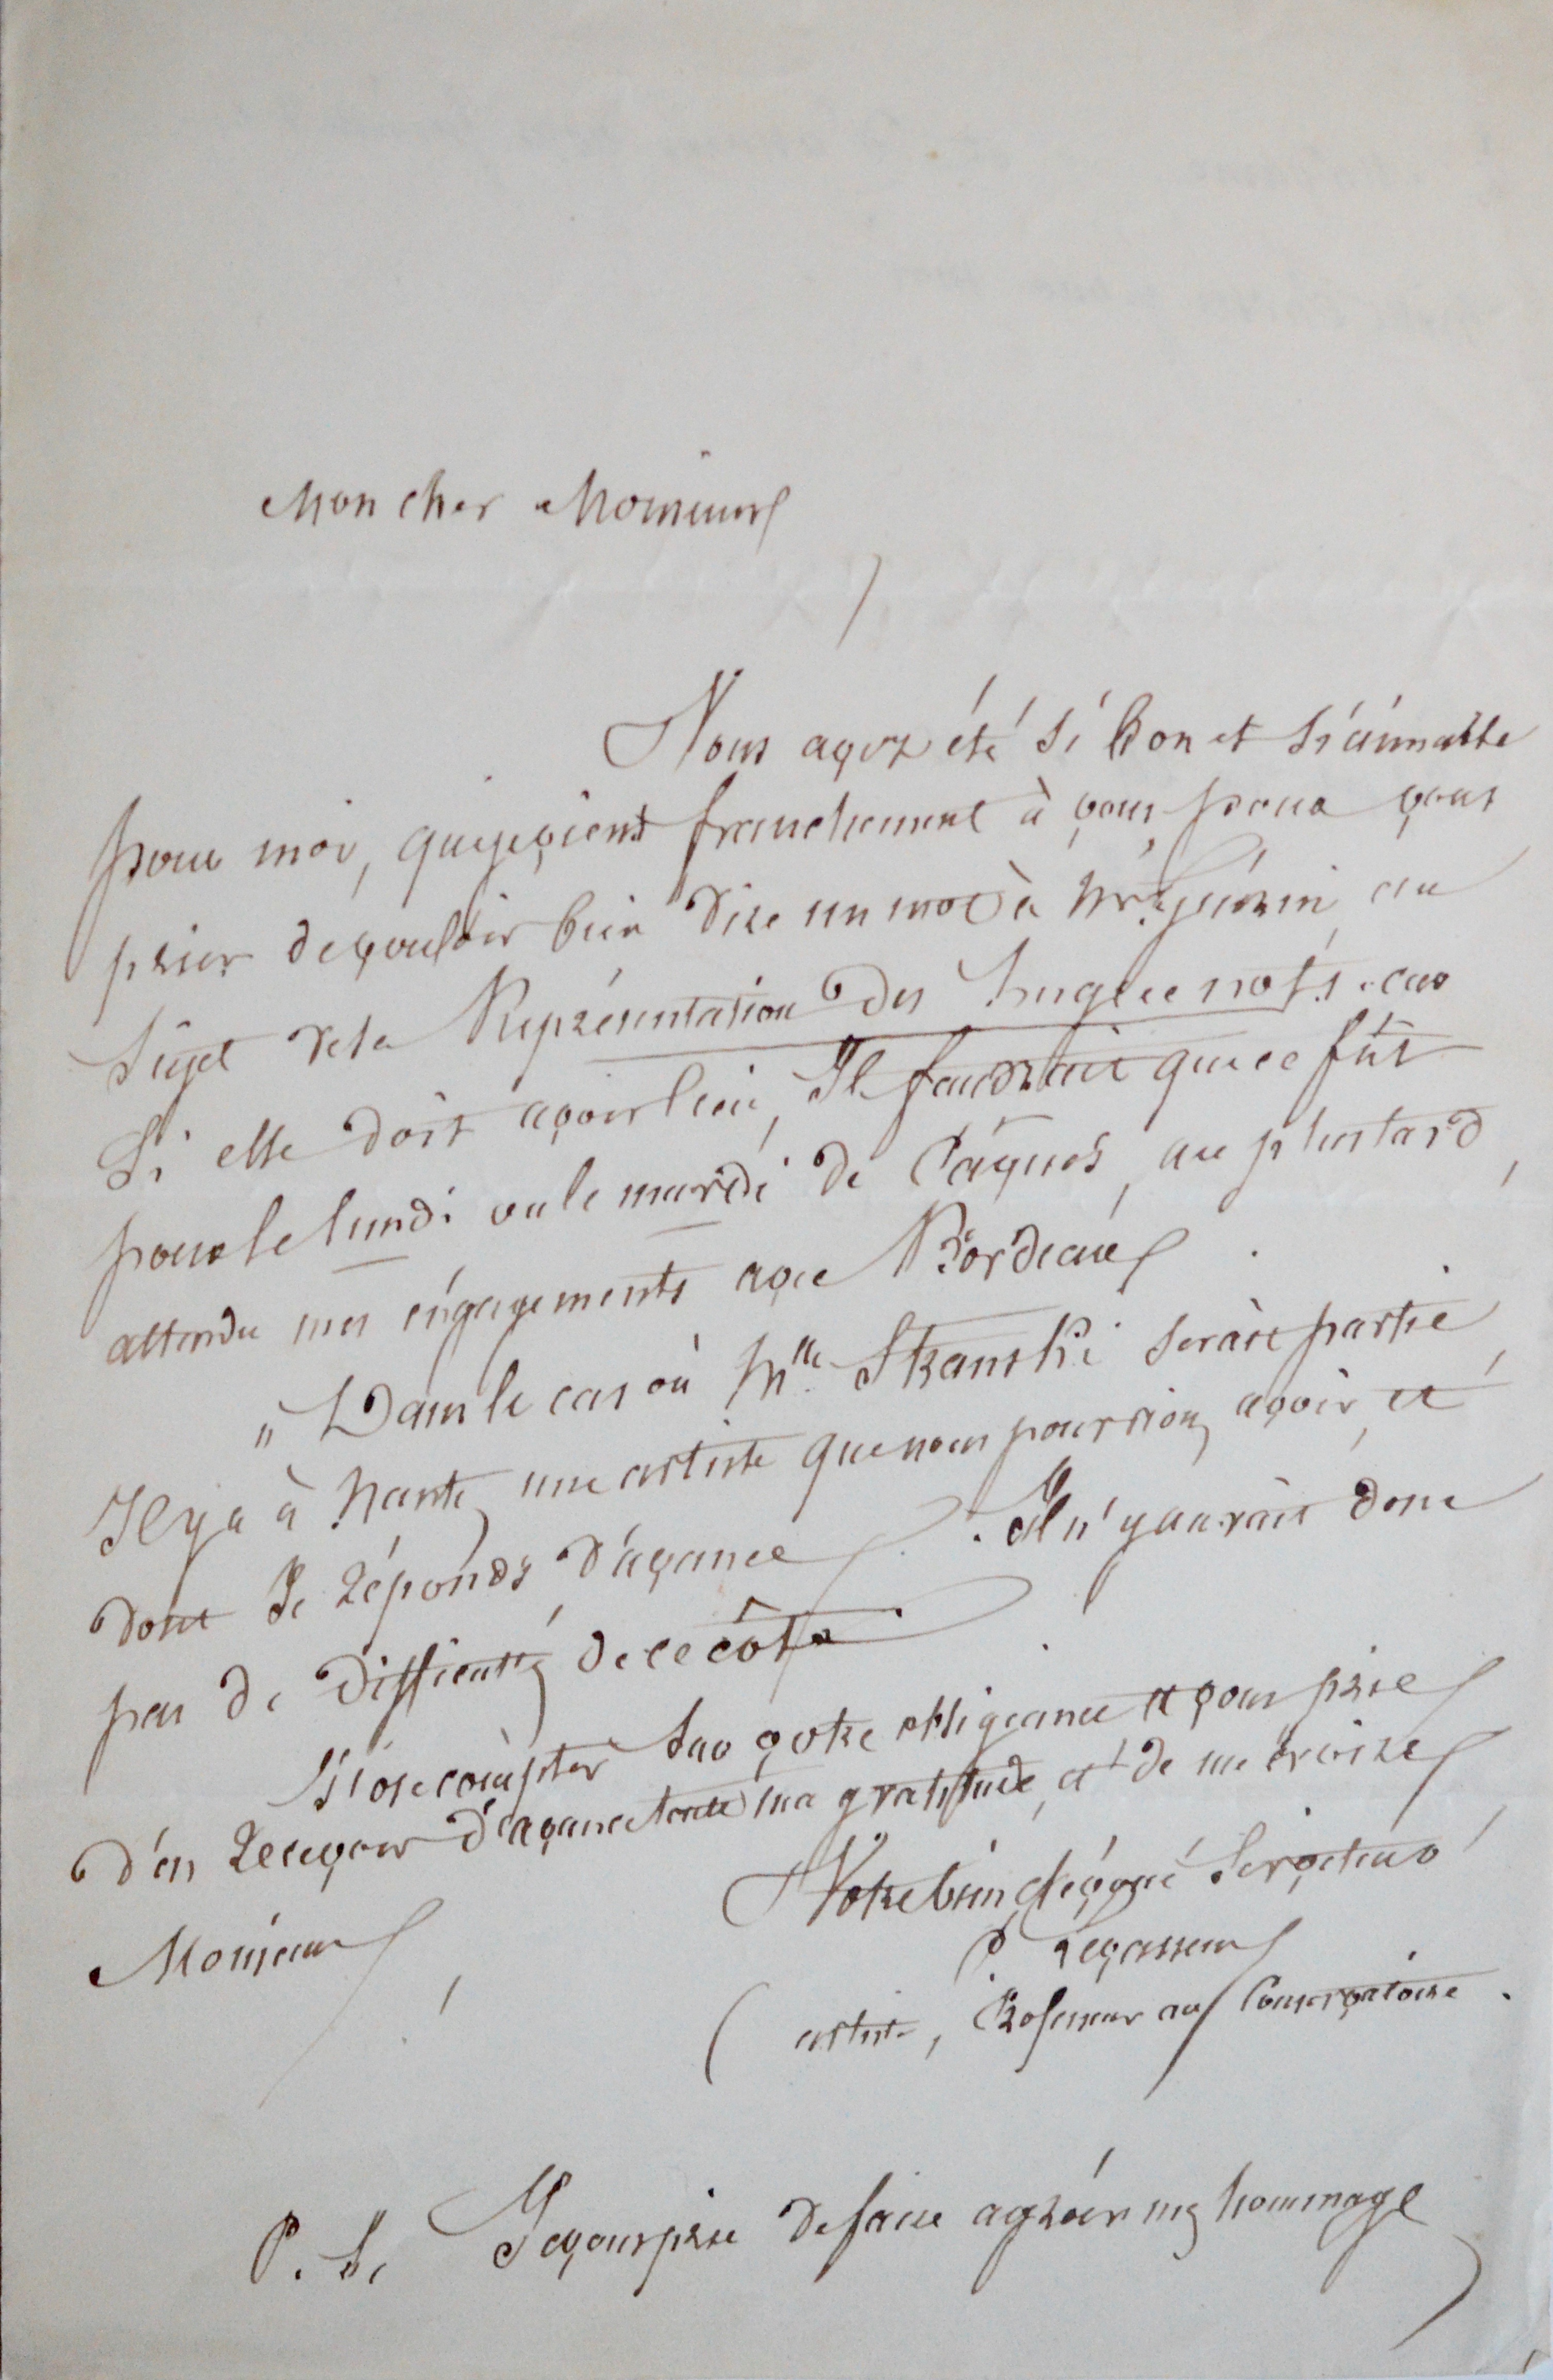 Mon cher Monsieur
Vous avez été si bon et si aimable
pour moi, que je viens franchement à vous pour vous
prier de vouloir bien dire un mot à Mr. Guérin au
sujet de la Représentation des huguenots. car
Si elle doit avoir lieu, Il faudrait que ce fût
pour le lundi ou le mardi de Pâques, au plus tard,
attendu mes éngagements avec Bordeaux.
" Dans le cas où Mlle. Stranski serait partie,
Il y a à Nantes une artiste que nous pourrions avoir, et
dont Je réponds d'avance. Il n'y aurait donc
pas de difficultés de ce côté.
J'ose compter sur votre obligeance et vous prie
d'en recevoir d'avance toute ma gratitude, et de me croire
Monsieur,
Votre bien dévoué Serviteur
P. Levasseur
( artiste, Professeur au Conservatoire.
P. S. Je vous prie de faire agréér mes hommage